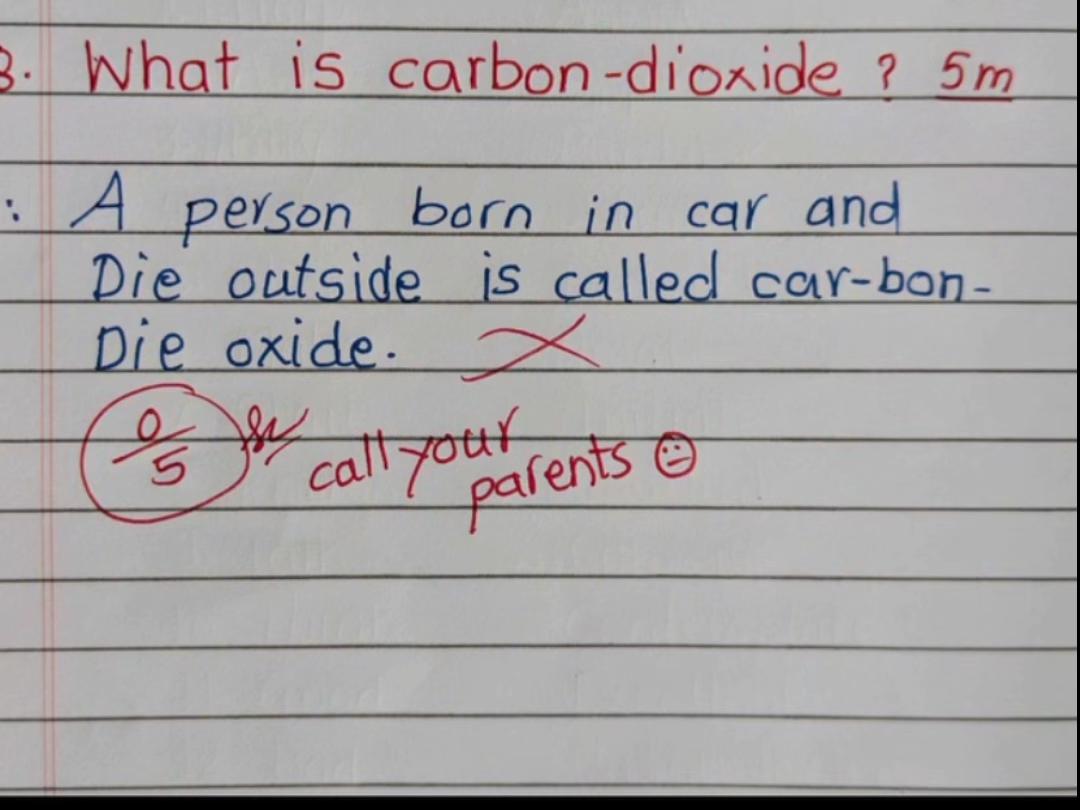 3. What is carbon-dioxide ? 5m
: A person born in car and
Die outside is called car-bon-
Die oxide.
0/5
call your
parents